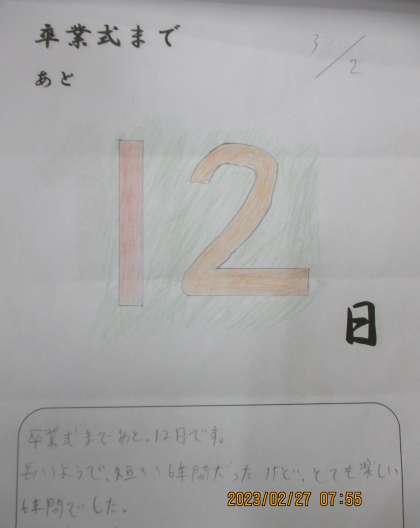 卒業式まで
3/2
あと
12
日
卒業式まであと、12日です。
長いようで、短い6年間だったけど、とても楽しい
6年間でした。
2023/02/27 07:55